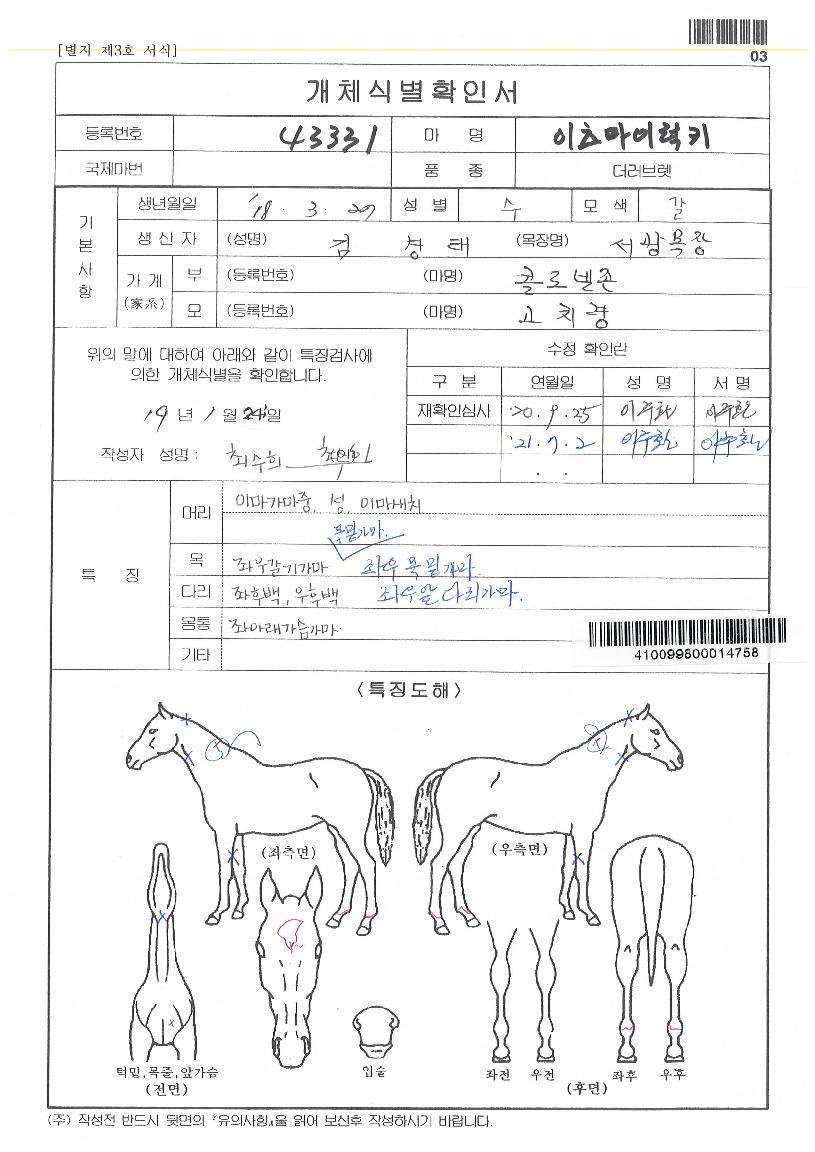 [별지 제3호 서식]
03
개체식별확인서
등록번호 43331 마 명 이츠마이럭키
국제마번 품 종 더러브렛
기본사항
생년월일 '18. 3. 27 성 별 수 모 색 갈
생 산 자 (성명) 김 창 태 (목장명) 서쌍목장
가 계 (家系) 부 (등록번호) (마명) 콜로넬존
모 (등록번호) (마명) 고치량
위의 말에 대하여 아래와 같이 특징검사에
의한 개체식별을 확인합니다.
19 년 1 월 24 일
작성자 성명 : 최수희
수정 확인란
구 분 연월일 성 명 서 명
재확인심사 '20. 9. 25 이주환 이주환
'21. 7. 2 이주환 이주환
. .
특 징
머리 이마가마중, 성, 이마새치
목밑가마.
목 좌우갈기가마 좌우 목밑가마.
다리 좌후백, 우후백 좌우앞다리가마.
몸통 좌아래가슴가마.
기타
410099800014758
<특징도해>
(좌측면) (우측면)
턱밑,목줄,앞가슴
(전면)
입술
좌전 우전 좌후 우후
(후면)
(주) 작성전 반드시 뒷면의 『유의사항』을 읽어 보신후 작성하시기 바랍니다.